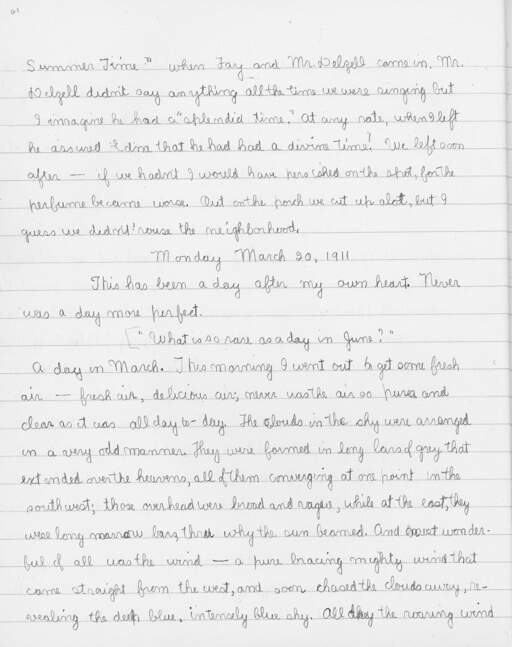 Summer Time" when Fay and Mr. Delzell came in. Mr.
Delzell didn't say anything all the time we were singing but
I imagine he had a "splendid time." At any rate, when I left
he assured Edna that he had had a divine time! We left soon
after — if we hadn't I would have perished on the spot, for the
perfume became worse. Out on the porch we cut up alot, but I
guess we didn't 'rouse the neighborhood.
Monday March 20, 1911
This has been a day after my own heart. Never
was a day more perfect.
["What is so rare as a day in June?"
A day in March. This morning I went out to get some fresh
air — fresh air, delicious air; never was the air so pure and
clear as it was all day to-day. The clouds in the sky were arranged
in a very odd manner. They were formed in long bars of grey that
extended over the heavens, all of them converging at one point in the
southwest; those overhead were broad and vague, while at the east, they
were long narrow bars, thru why the sun beamed. And most wonder-
ful of all was the wind — a pure bracing mighty wind that
came straight from the west, and soon chased the clouds away, re-
vealing the deep blue, intensely blue sky. All day the roaring wind